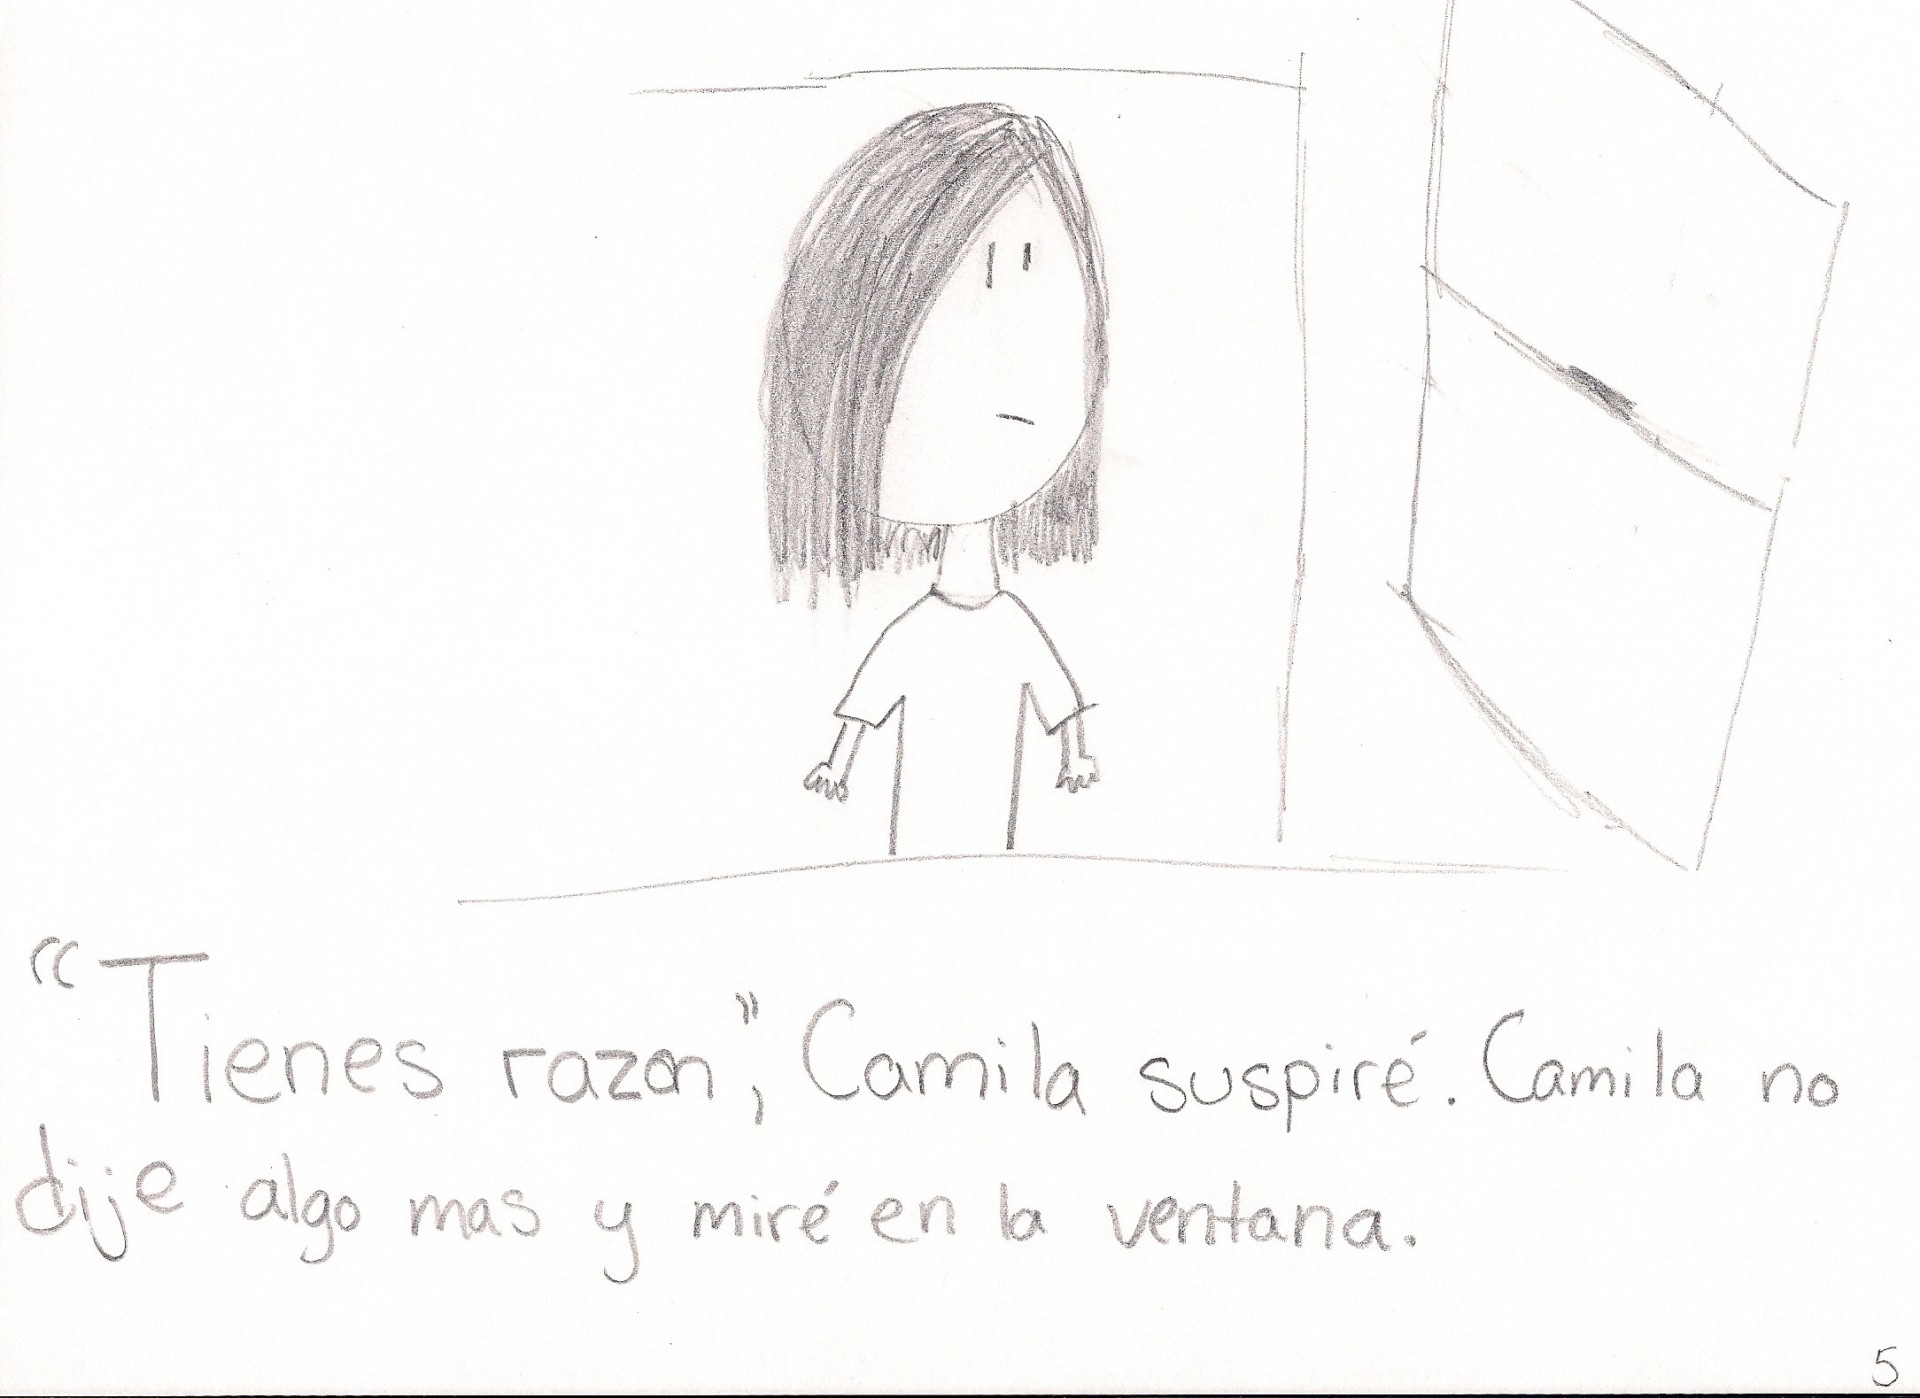 “Tienes razon”, Camila suspiré. Camila no
dije algo mas y miré en la ventana.
5